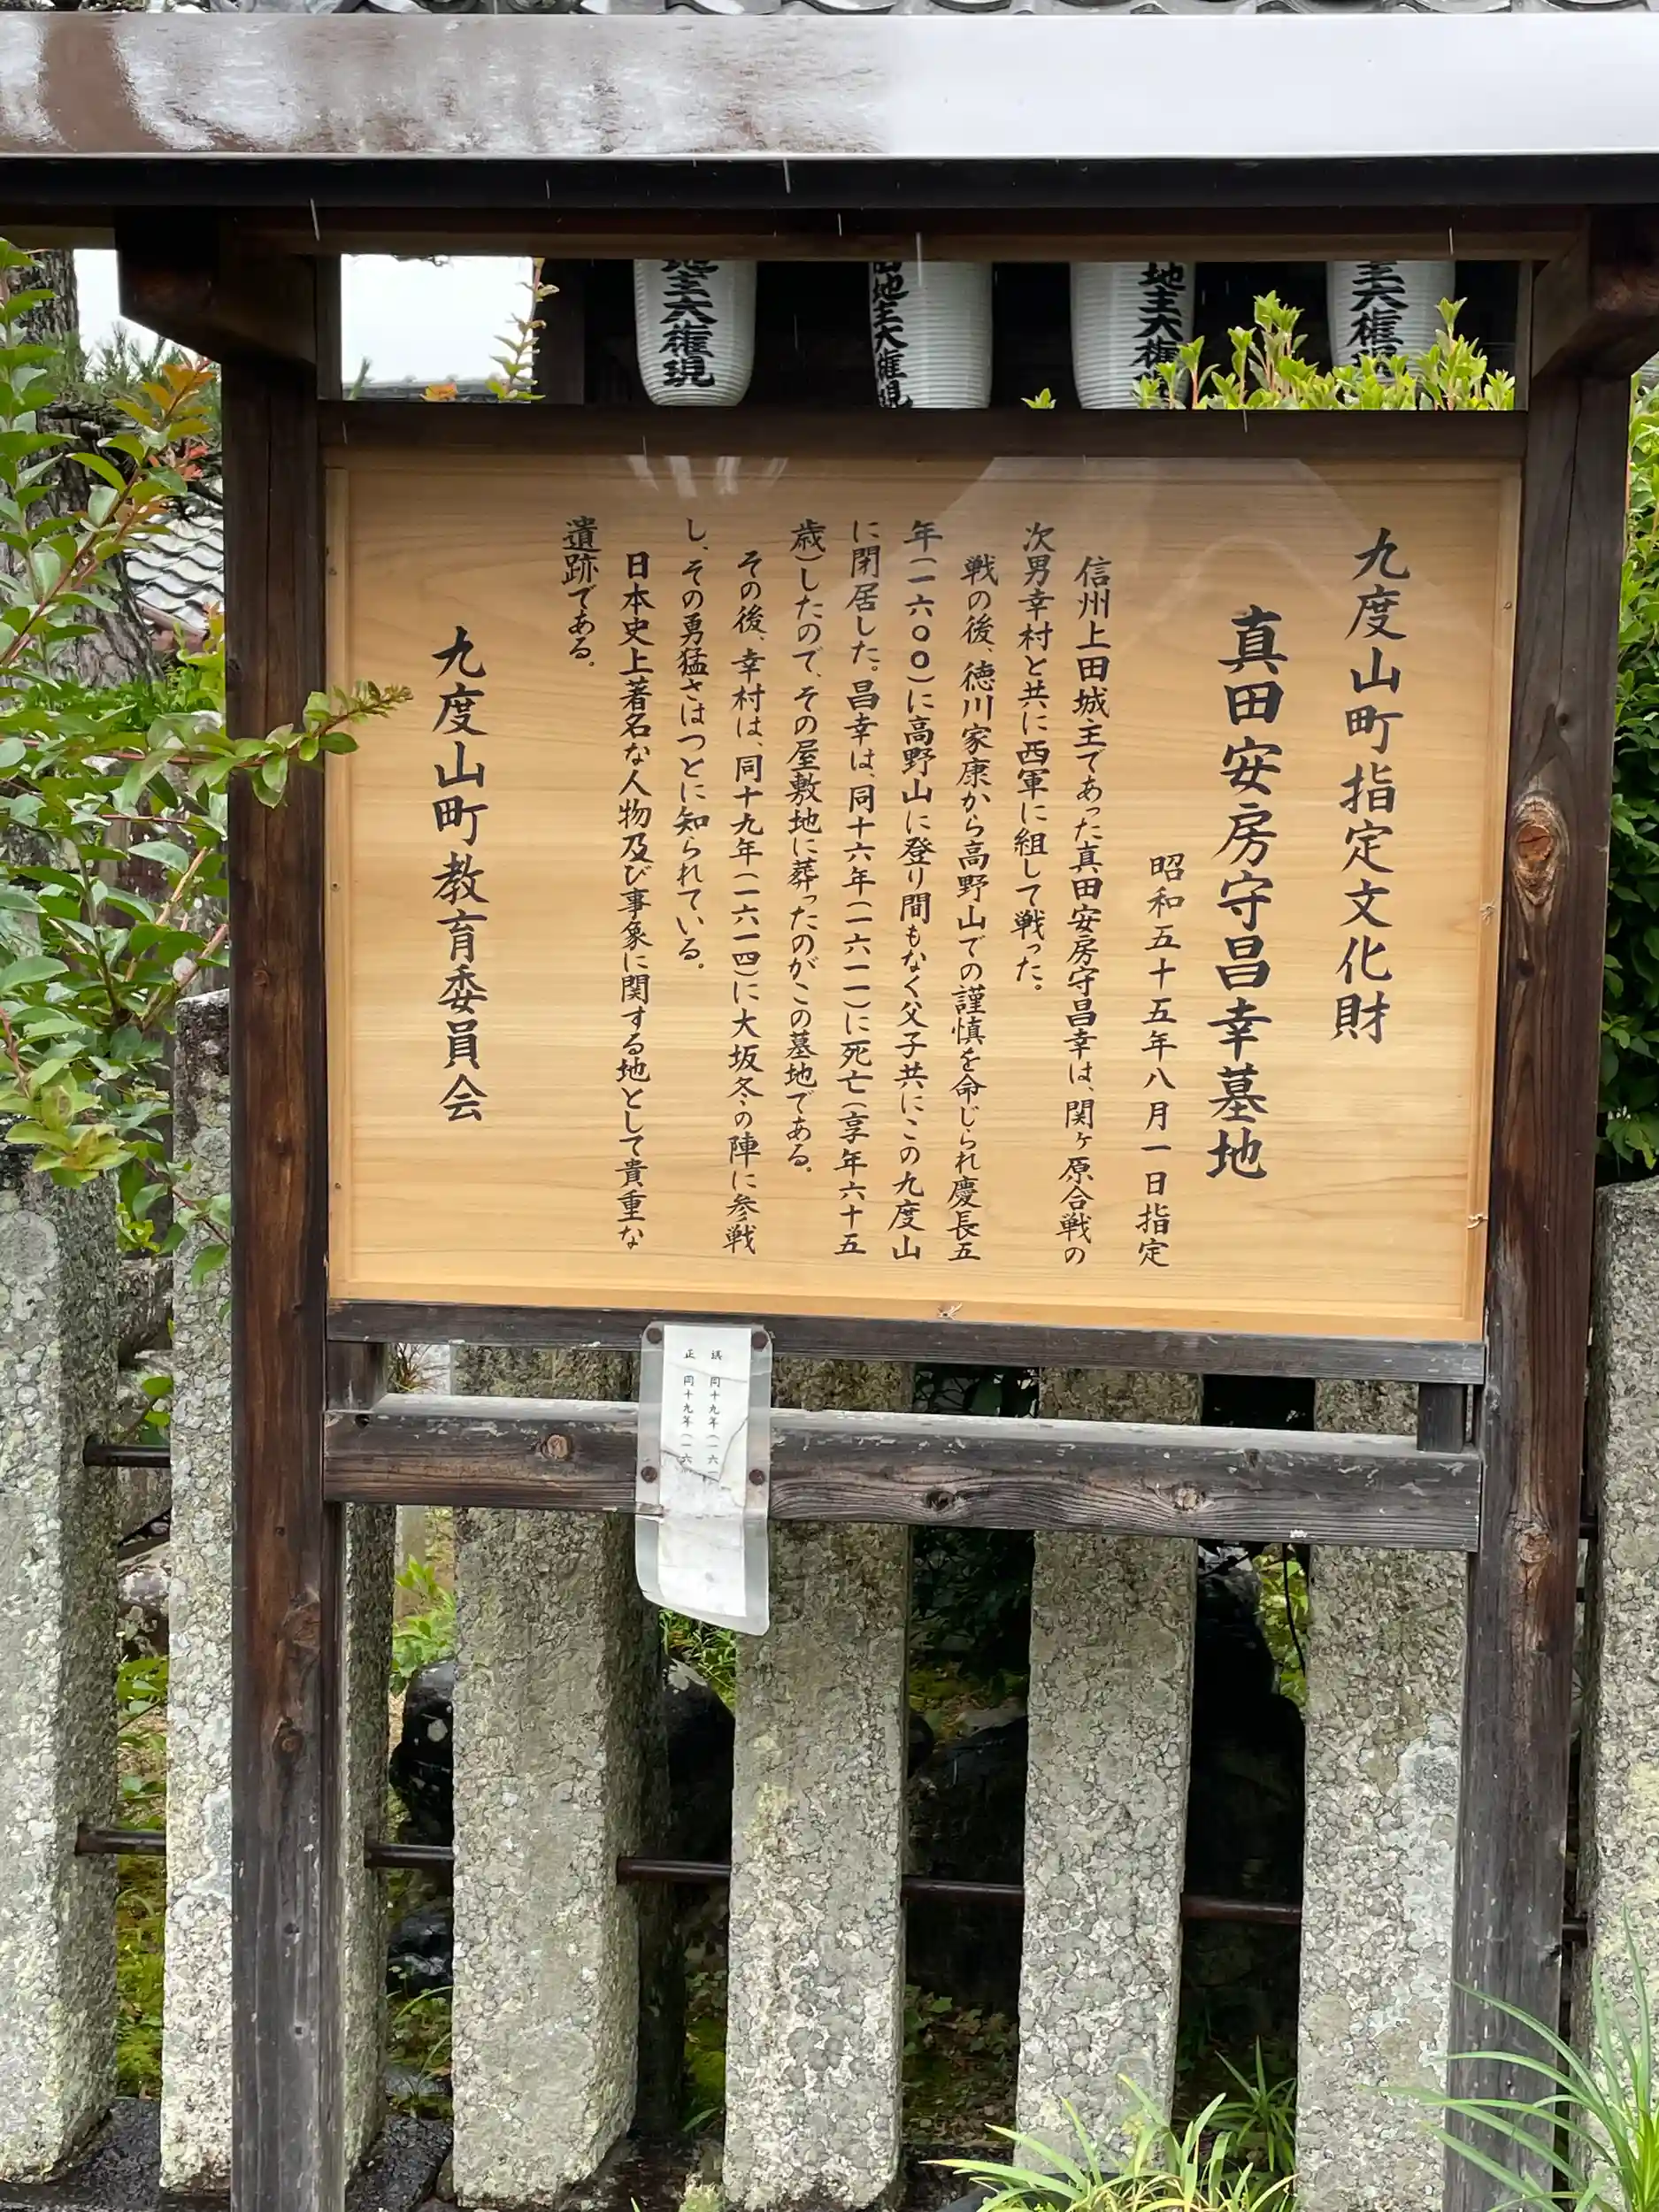 九度山町指定文化財
真田安房守昌幸墓地
昭和五十五年八月一日指定
信州上田城主であった真田安房守昌幸は、関ヶ原合戦の
次男幸村と共に西軍に組して戦った。
戦の後、徳川家康から高野山での謹慎を命じられ慶長五
年(一六〇〇)に高野山に登り間もなく父子共にこの九度山
に閉居した。昌幸は、同十六年(一六一一)に死亡(享年六十五
歳)したので、その屋敷地に葬ったのがこの墓地である。
その後、幸村は、同十九年(一六一四)に大坂冬の陣に参戦
し、その勇猛さはつとに知られている。
日本史上著名な人物及び事象に関する地として貴重な
遺跡である。
九度山町教育委員会
地主大権現
地主大権現
地主大権
主大権現
誤 同十九年(一六一
正 同十九年(一六